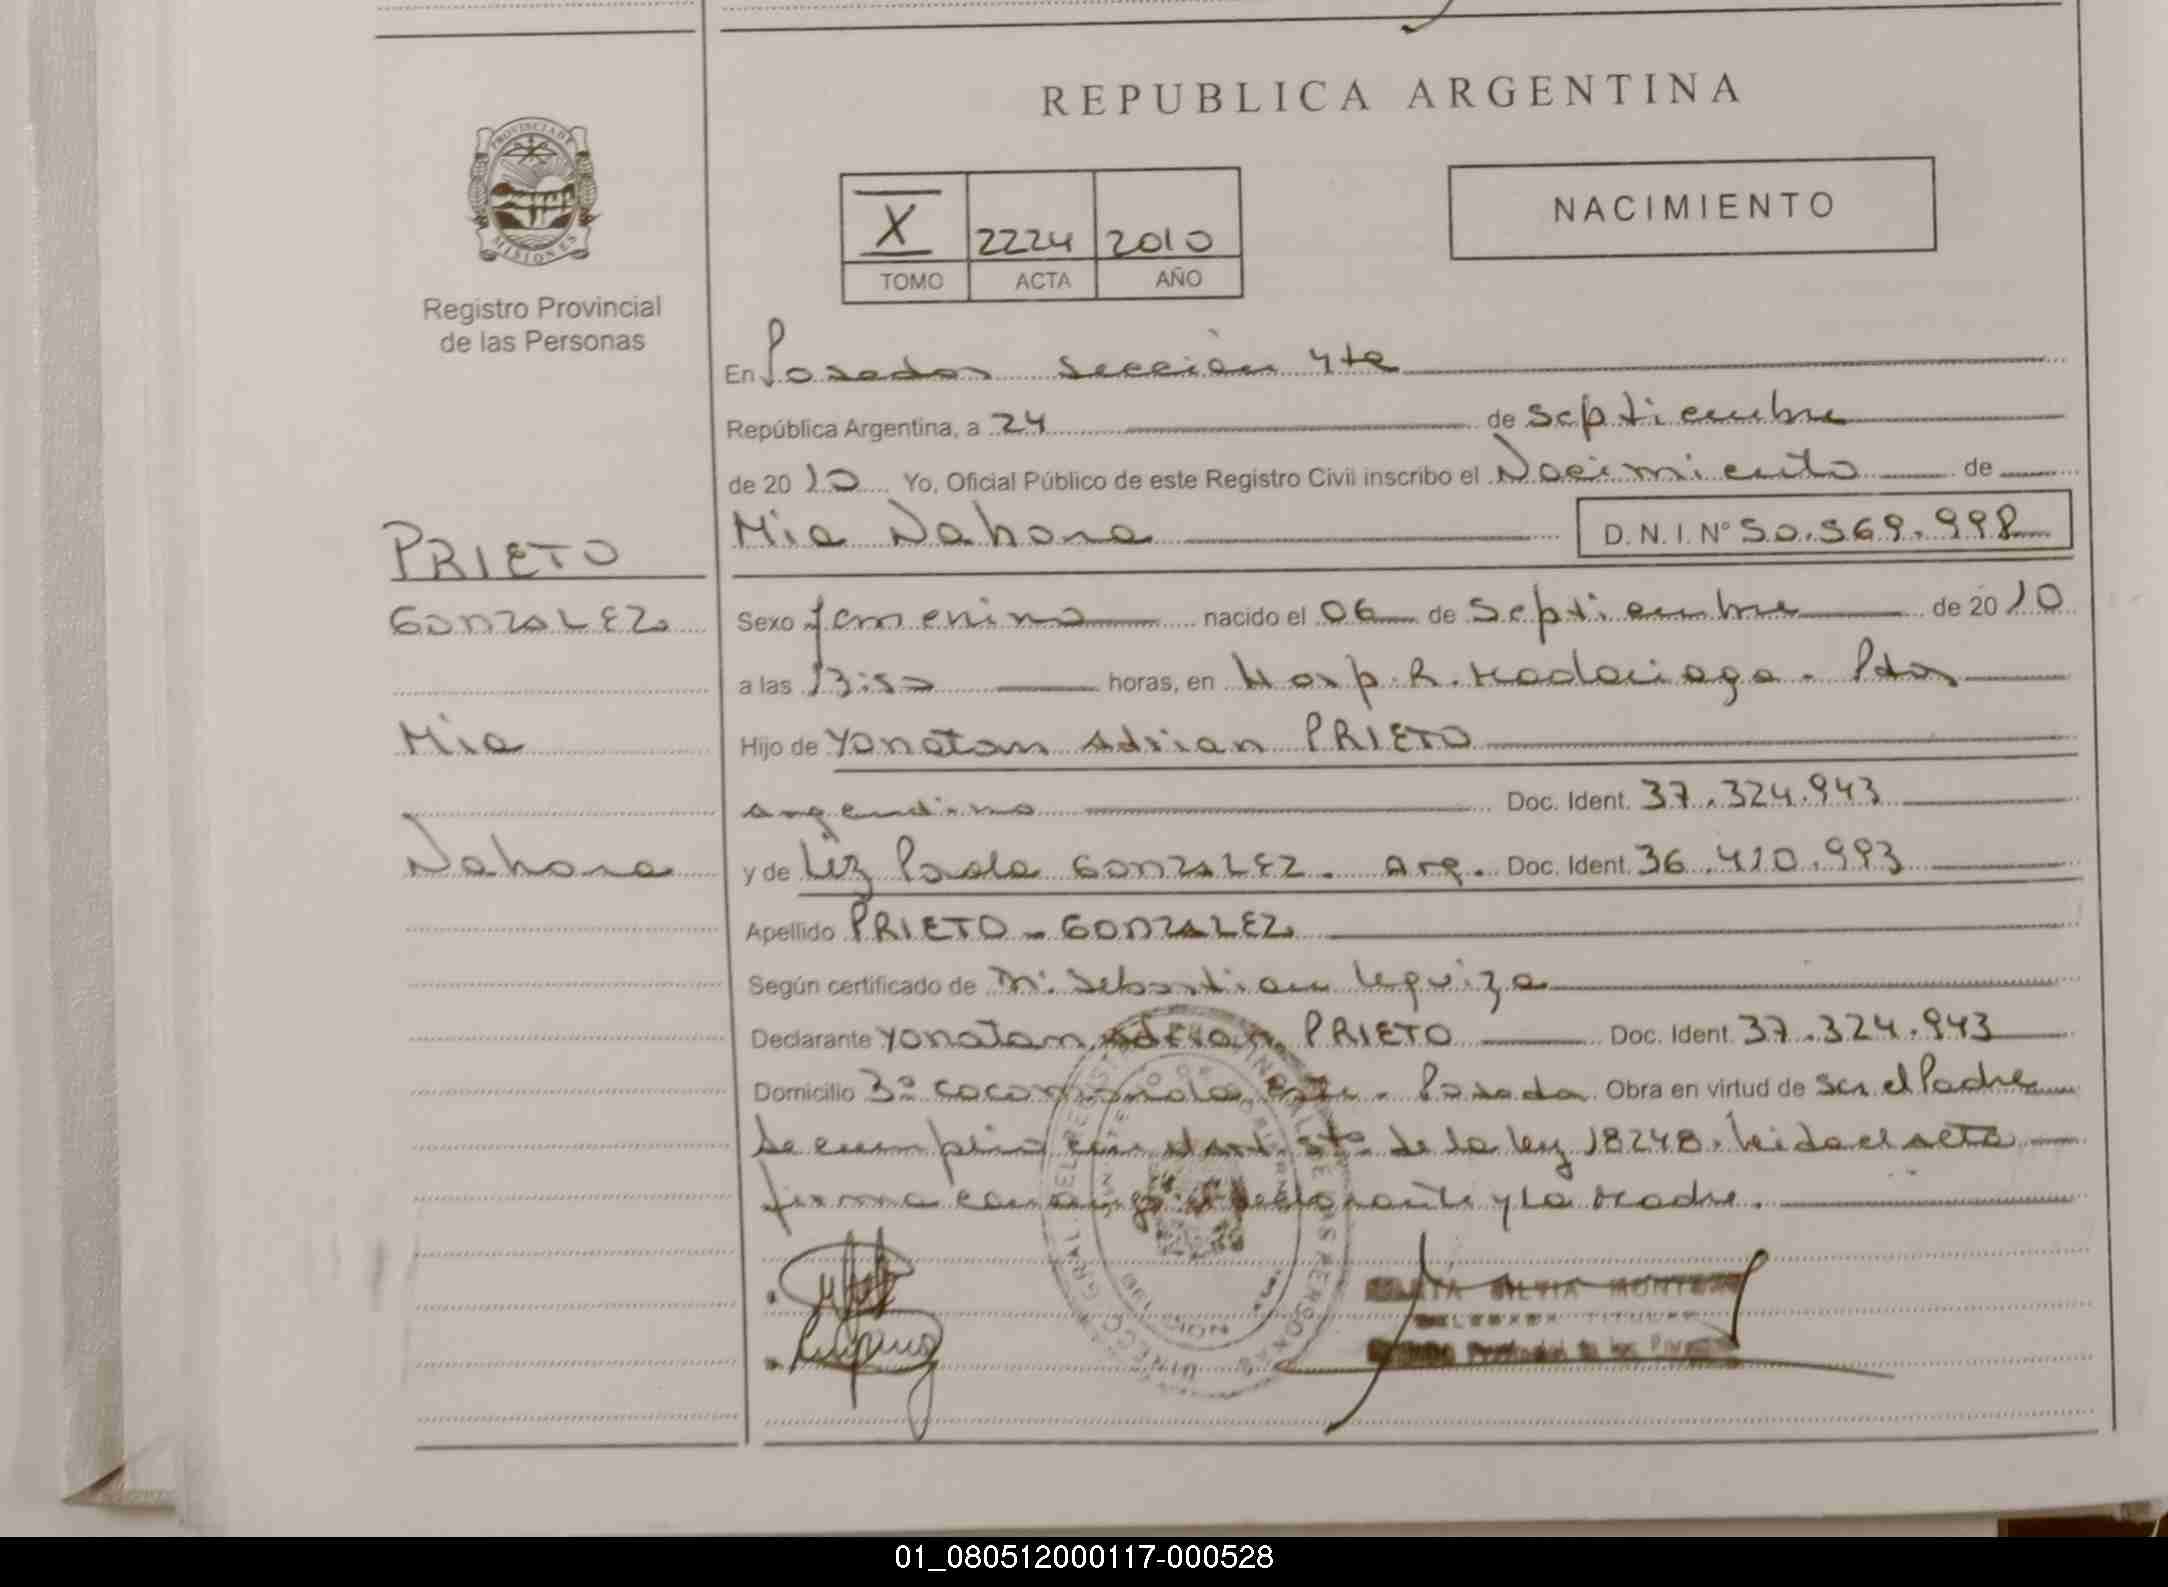 REPUBLICA ARGENTINA
PROVINCIA DE MISIONES
Registro Provincial
de las Personas
X 2224 2010
TOMO ACTA AÑO
NACIMIENTO
En Posadas sección 4ta
República Argentina, a 24 de septiembre
de 2010 Yo, Oficial Público de este Registro Civil inscribo el Nacimiento de
PRIETO
Mia Nahora D.N.I. Nº 50.569.998
GONZALEZ
Sexo femenino nacido el 06 de Septiembre de 2010
a las 13:50 horas, en Hosp. R. Madariaga - Pdas
Mia
Hijo de Yonatan Adrian PRIETO
argentino Doc. Ident. 37.324.943
Nahora
y de Liz Paola GONZALEZ. Arg. Doc. Ident. 36.410.993
Apellido PRIETO - GONZALEZ
Según certificado de Sebastian Leguiza
Declarante Yonatan Adrian PRIETO Doc. Ident. 37.324.943
Domicilio 3º Posadas Obra en virtud de ser el Padre
Se cumplio con el art. 5to de la ley 18248. Leida el acta
firma conmigo el declarante y la Madre.
SILVIA
TITULAR
Provincial de las Personas
01_080512000117-000528